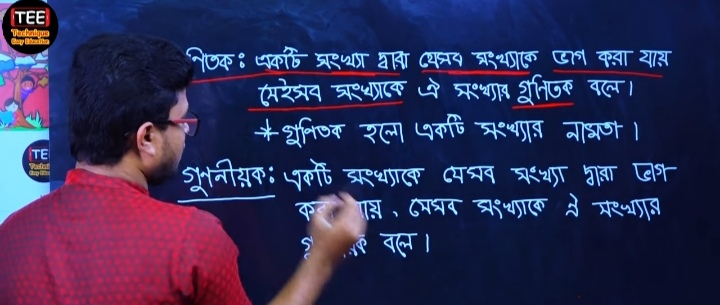 TEE
Technique
Easy Education
ণিতক : একটি সংখ্যা দ্বারা যেসব সংখ্যাকে ভাগ করা যায়
সেইসব সংখ্যাকে ঐ সংখ্যার গুণিতক বলে।
* গুণিতক হলো একটি সংখ্যার নামতা।
TE
গুণনীয়ক : একটি সংখ্যাকে যেসব সংখ্যা দ্বারা ভাগ
যায়, সেসব সংখ্যাকে ঐ সংখ্যার
বলে।